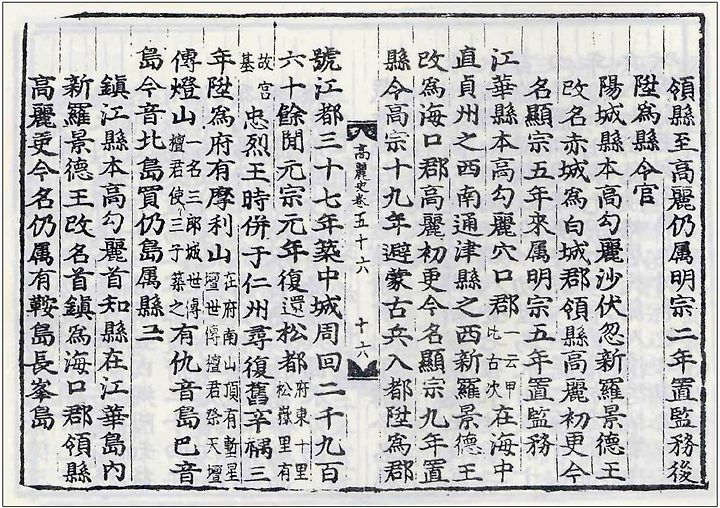 領縣至高麗仍属明宗二年置監務後
陞爲縣令官
陽城縣本高勾麗沙伏忽新羅景德王
改名赤城爲白城郡領縣高麗初更今
名顯宗五年來属明宗五年置監務
江華縣本高勾麗穴口郡一云甲比古次在海中
直貞州之西南通津縣之西新羅景德王
改爲海口郡高麗初更今名顯宗九年置
縣令高宗十九年避蒙古兵入都陞爲郡
高麗史卷五十六 十六
號江都三十七年築中城周回二千九百
六十餘閒元宗元年復還松都府東十里松嶽里有
故宮基忠烈王時併于仁州尋復舊辛禑三
年陞爲府有摩利山在府南山頂有塹星壇世傳檀君祭天壇
傳燈山一名三郎城世傳檀君使三子築之有仇音島巴音
島今音北島買仍島属縣二
鎭江縣本高勾麗首知縣在江華島內
新羅景德王改名首鎭爲海口郡領縣
高麗更今名仍属有鞍島長峯島